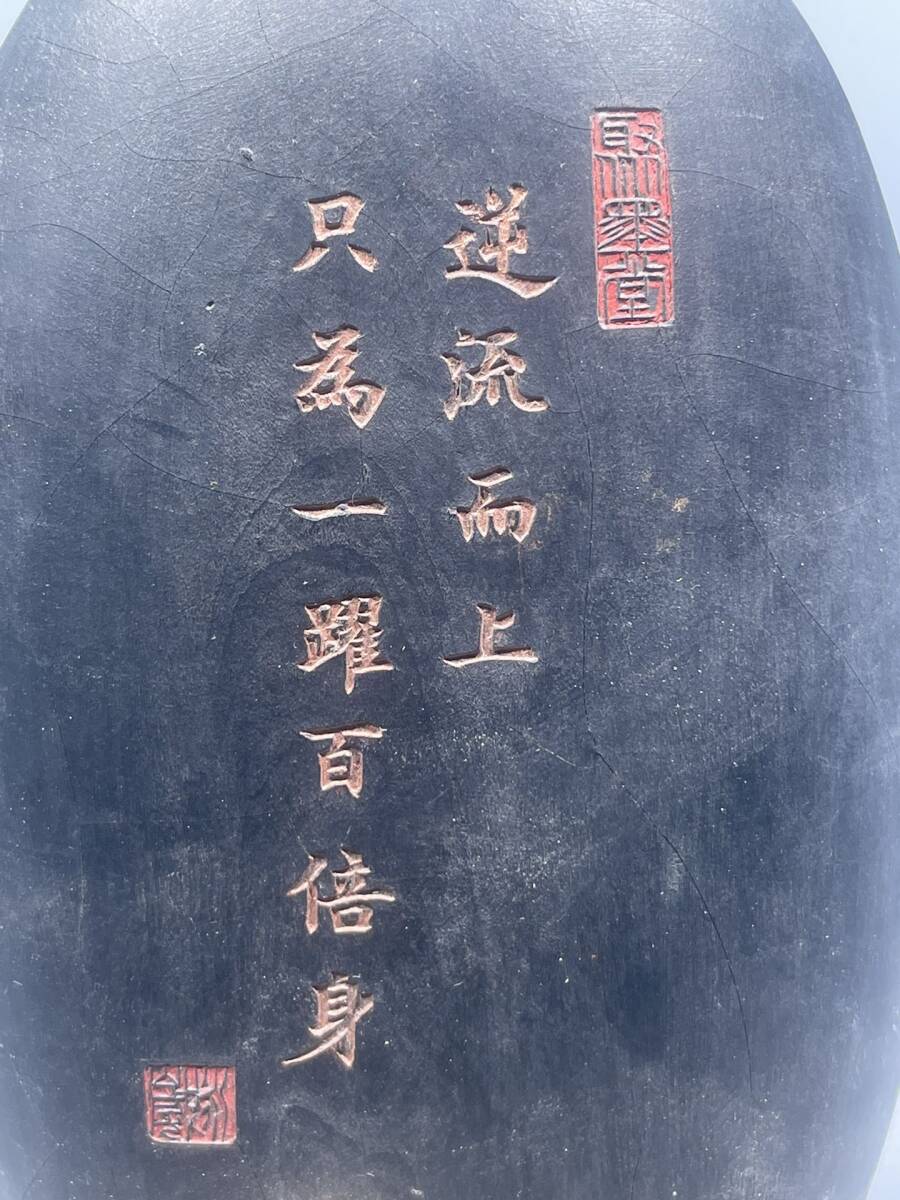 聚堂
逆流而上
只為一躍百倍身